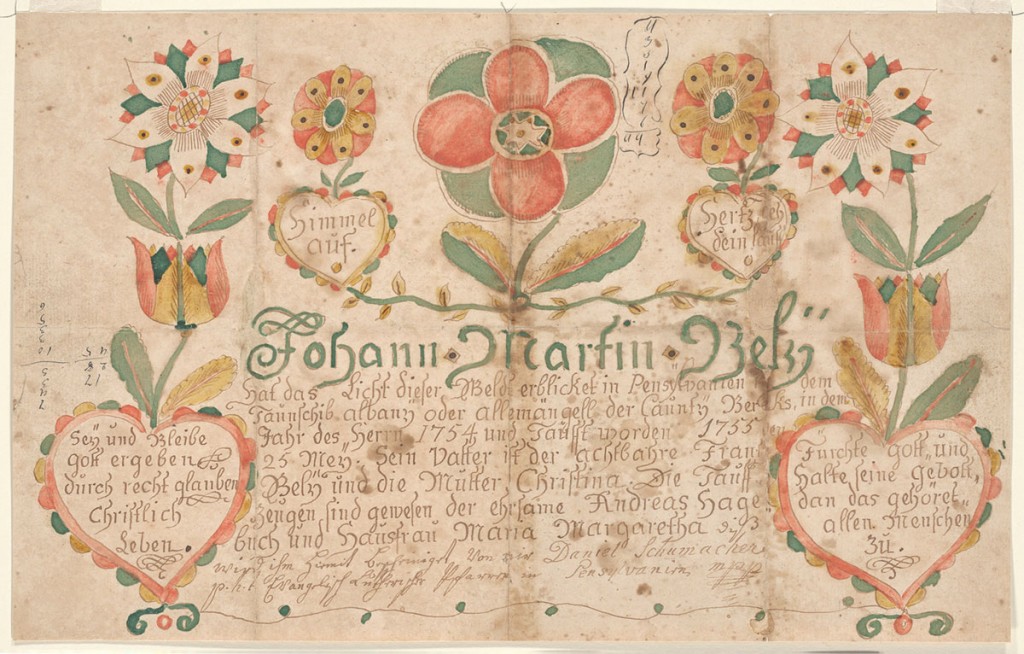 Himmel
auf.
Hertz
dein
Johann Martin Belz
Hat das Licht dieser Weldt erblicket in Pensylvanien dem
Taunschib albany oder allemängell der Caunty Berks, in dem
Jahr des Herrn 1754 und Taufft worden 1755 den
25 Mey. Sein Vatter ist der achtbahre Frantz
Belz und die Mutter Christina. Die Tauff
Zeugen sind gewesen der ehrsame Andreas Hage
buch und Hausfrau Maria Margaretha
wird ihm hiemit bescheiniget Von mir Daniel Schumacher
p.h.t Evangelisch Lutherische Pfarrer in Pensylvanien
Sey und Bleibe
gott ergeben
durch recht glauben
Christlich
Leben.
Fürchte gott, und
Halte seine gebott,
dan das gehöret
allen Menschen
Zu.